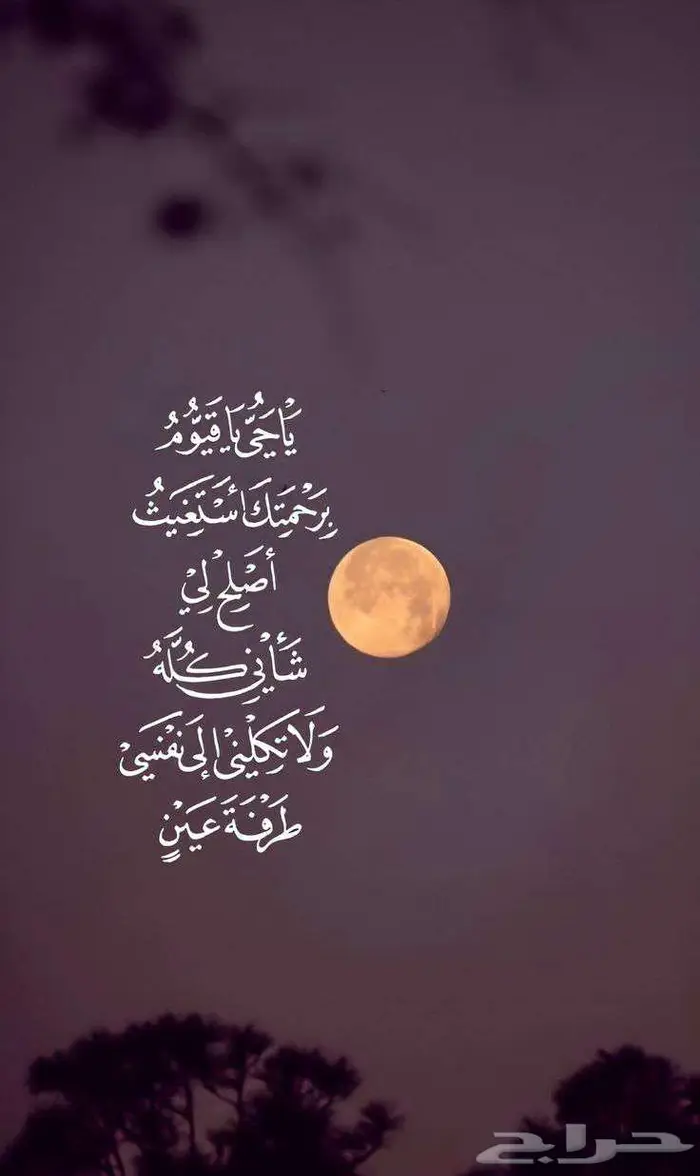 يَا حَيُّ يَا قَيُّومُ
بِرَحْمَتِكَ أَسْتَغِيثُ
أَصْلِحْ لِيْ
شَأْنِي كُلَّهُ
وَلَا تَكِلْنِيْ إِلَى نَفْسِيْ
طَرْفَةَ عَيْنٍ
حراج